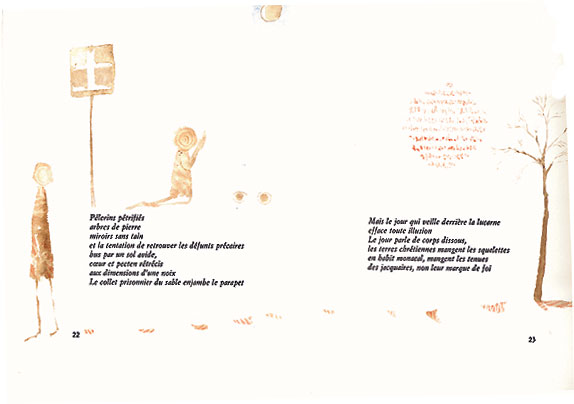 Pélerins pétrifiés
arbres de pierre
miroirs sans tain
et la tentation de retrouver les défunts précaires
bus par un sol avide,
cœur et pecten rétrécis
aux dimensions d'une noix
Le collet prisonnier du sable enjambe le parapet
22
Mais le jour qui veille derrière la lucarne
efface toute illusion
Le jour parle de corps dissous,
les terres chrétiennes mangent les squelettes
en habit monacal, mangent les tenues
des jacquaires, non leur marque de foi
23